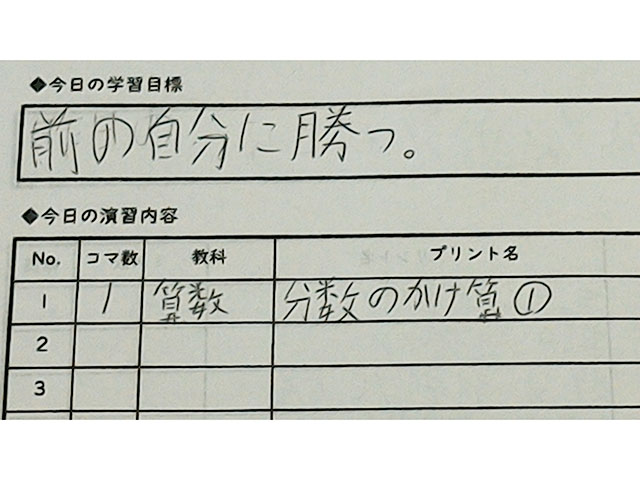 ◆今日の学習目標
前の自分に勝つ。
◆今日の演習内容
No. コマ数 教科 プリント名
1 1 算数 分数のかけ算①
2
3